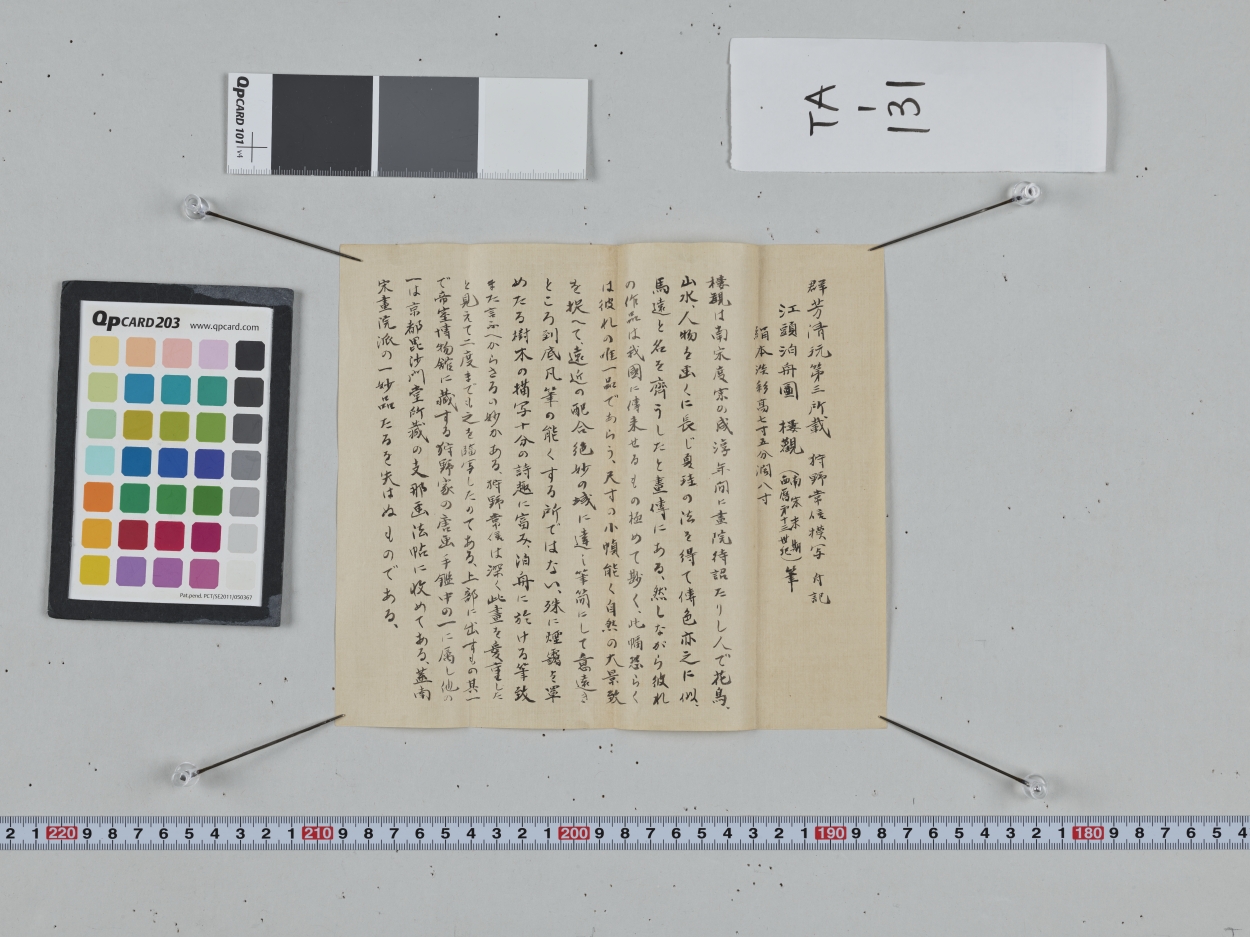 QPCARD 101 v4
TA
1
131
群芳清玩第三所載 狩野常信模写 附記
江頭泊舟圖 樓觀(南宋末期 西暦第十三世紀)筆
絹本淡彩高七寸五分濶八寸
樓觀は南宋度宗の咸淳年间に畫院待詔たりし人で花鳥、
山水、人物を画くに長じ夏珪の法を得て傅色亦之に似、
馬遠と名を齊うしたと畫傳にある、然しながら彼れ
の作品は我國に傳来せるもの極めて尠く、此幅恐らく
は彼れの唯一品であらう、尺寸の小幀能く自然の大景致
を捉へて、遠近の配合絶妙の域に達し筆简にして意遠き
ところ到底凡筆の能くする所ではない、殊に煙靄を罩
めたる樹木の描写十分の詩趣に富み、泊舟に於ける筆致
また言ふへからさるの妙かある、狩野常信は深く此畫を愛重した
と見えて二度までも之を臨写したのてある、上部に出すもの其一
で帝室博物館に藏する狩野家の唐画手鑑中の一に属し他の
一は京都毘沙門堂所藏の支那画法帖に收めてある、蓋南
宋畫院派の一妙品たるを失はぬものである、
QPCARD 203 www.qpcard.com
Pat.pend. PCT/SE2011/050367
2 1 220 9 8 7 6 5 4 3 2 1 210 9 8 7 6 5 4 3 2 1 200 9 8 7 6 5 4 3 2 1 190 9 8 7 6 5 4 3 2 1 180 9 8 7 6 5 4